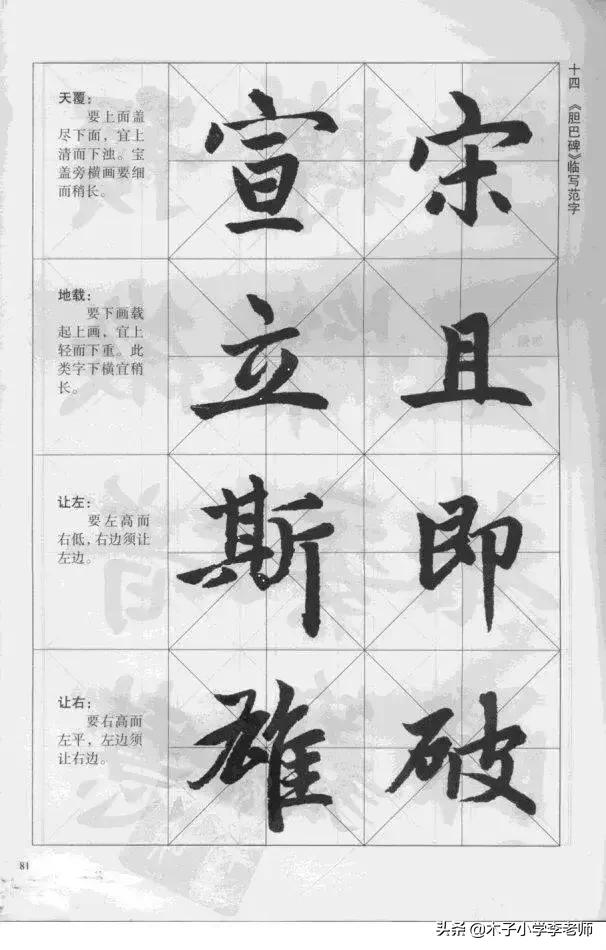 十四 《胆巴碑》临写范字
天覆：
要上面盖
尽下面，宜上
清而下浊。宝
盖旁横画要细
而稍长。
宣 宋
地载：
要下画载
起上画，宜上
轻而下重。此
类字下横宜稍
长。
立 且
让左：
要左高而
右低，右边须让
左边。
斯 即
让右：
要右高而
左平，左边须
让右边。
雄 破
81
头条 @木子小学李老师